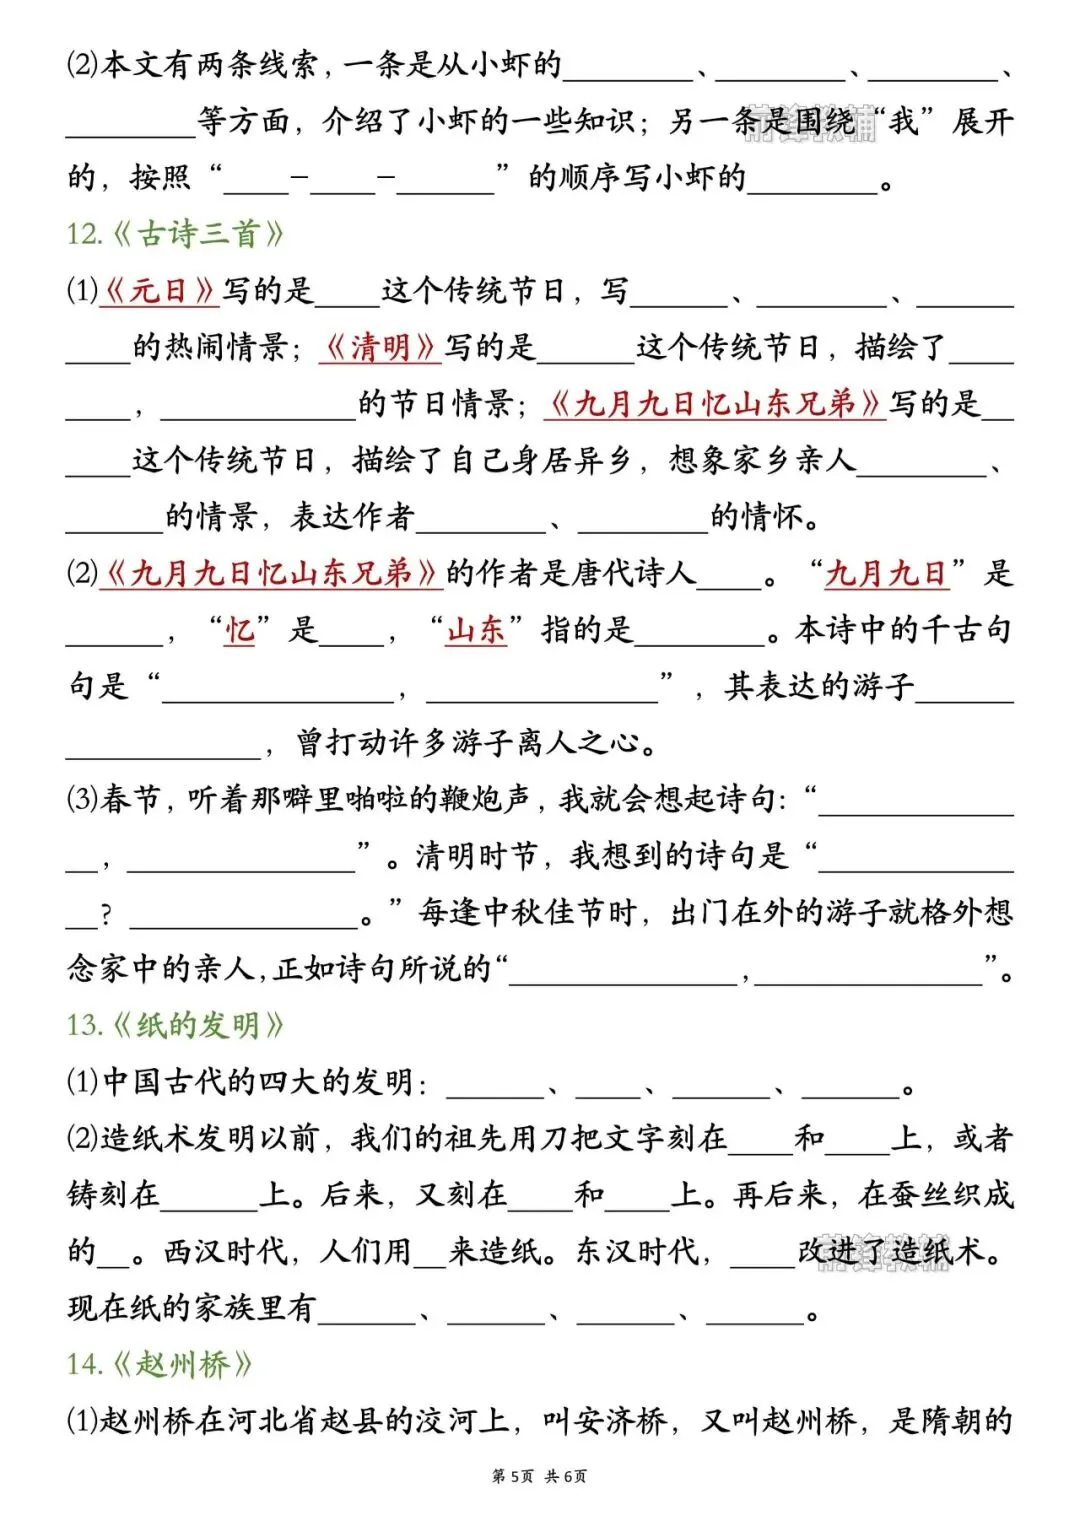 (2)本文有两条线索,一条是从小虾的________、________、________、
________等方面，介绍了小虾的一些知识；另一条是围绕“我”展开
的，按照“____-____-______”的顺序写小虾的________。
12.《古诗三首》
(1)《元日》写的是____这个传统节日，写______、________、______
____的热闹情景；《清明》写的是______这个传统节日，描绘了____
____，____________的节日情景；《九月九日忆山东兄弟》写的是__
____这个传统节日，描绘了自己身居异乡，想象家乡亲人________、
______的情景，表达作者________、________的情怀。
(2)《九月九日忆山东兄弟》的作者是唐代诗人____。“九月九日”是
______，“忆”是____，“山东”指的是________。本诗中的千古句
句是“______________，______________”，其表达的游子______
____________，曾打动许多游子离人之心。
(3)春节,听着那噼里啪啦的鞭炮声,我就会想起诗句:“____________
__,______________”。清明时节，我想到的诗句是“____________
__? ______________。”每逢中秋佳节时，出门在外的游子就格外想
念家中的亲人,正如诗句所说的“______________,______________”。
13.《纸的发明》
(1)中国古代的四大的发明：______、____、______、______。
(2)造纸术发明以前，我们的祖先用刀把文字刻在____和____上，或者
铸刻在______上。后来，又刻在____和____上。再后来，在蚕丝织成
的__。西汉时代，人们用__来造纸。东汉时代，____改进了造纸术。
现在纸的家族里有______、______、______、______。
14.《赵州桥》
(1)赵州桥在河北省赵县的洨河上，叫安济桥，又叫赵州桥，是隋朝的
第5页 共6页
前锋教辅
前锋教辅